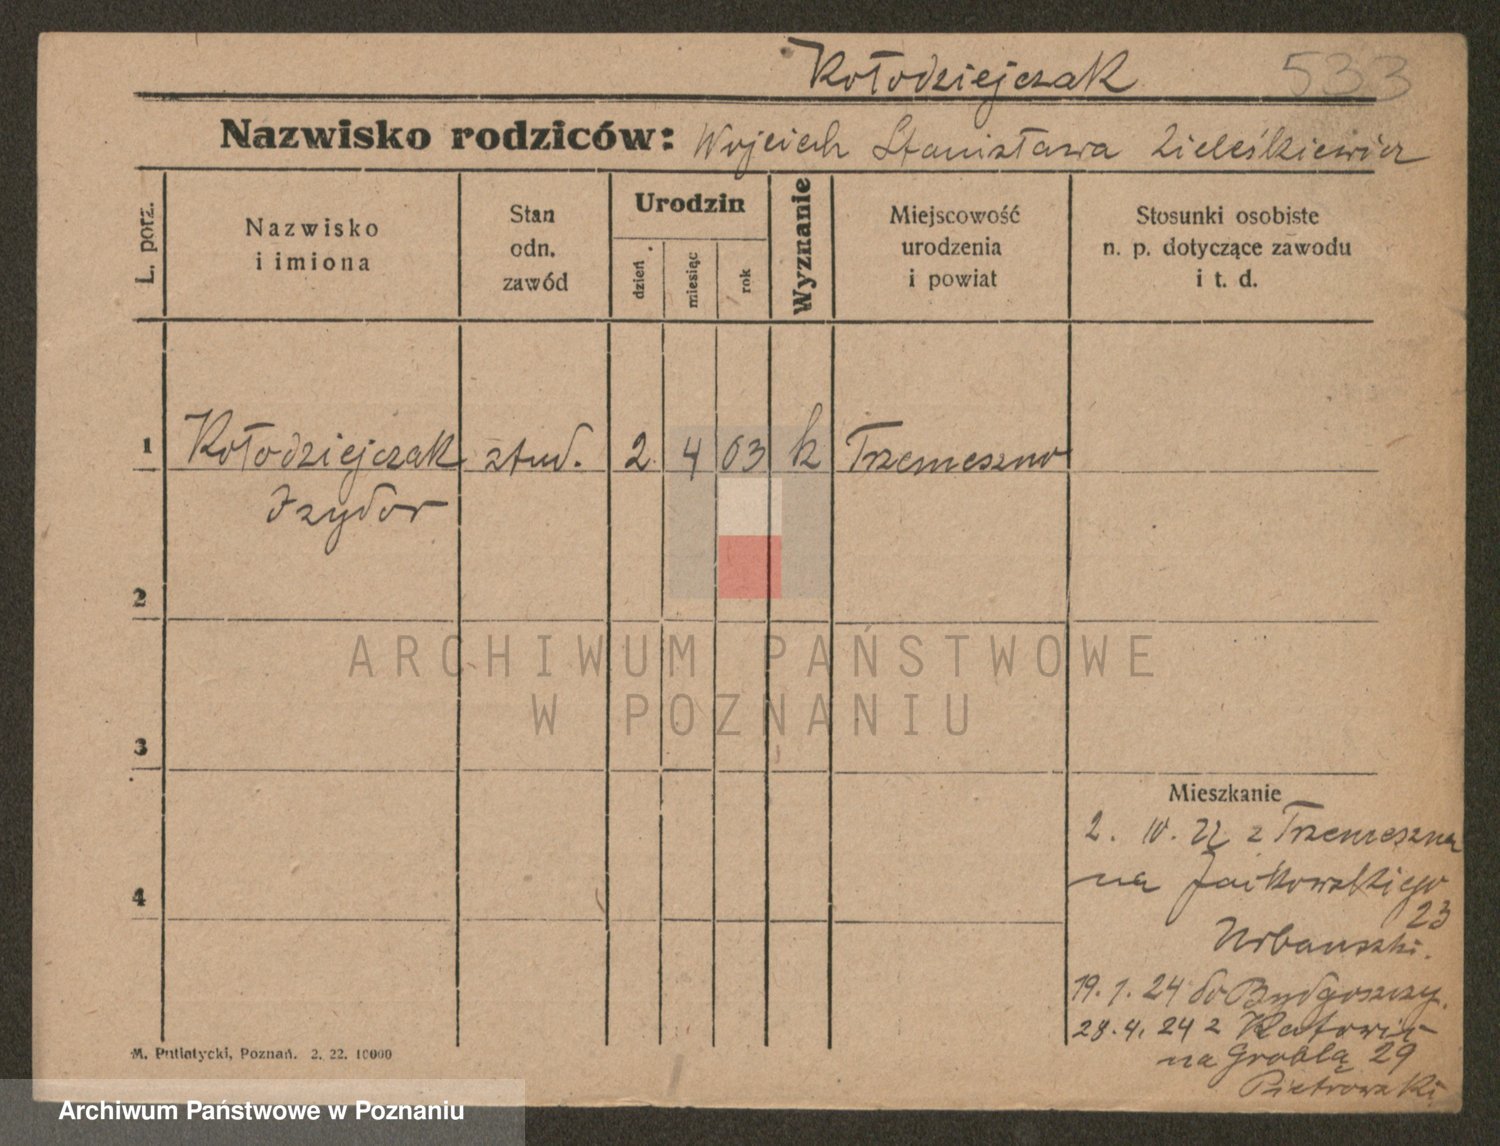 Kołodziejczak 533
Nazwisko rodziców: Wojciech Stanisława Zieleśkiewicz
L. porz.
Nazwisko
i imiona
Stan
odn.
zawód
Urodzin
dzień
miesiąc
rok
Wyznanie
Miejscowość
urodzenia
i powiat
Stosunki osobiste
n. p. dotyczące zawodu
i t. d.
1 Kołodziejczak stud. 2. 4 03 k Trzemeszno
Izydor
2
ARCHIWUM PAŃSTWOWE
W POZNANIU
3
Mieszkanie
2. IV. 22 z Trzemeszna
na Jackowskiego
23
Urbański.
4
19. 1. 24 do Bydgoszczy.
28. 4. 24 z Katowic
na Groblą 29
Piotrowski
M. Putiatycki, Poznań. 2. 22. 10000
Archiwum Państwowe w Poznaniu